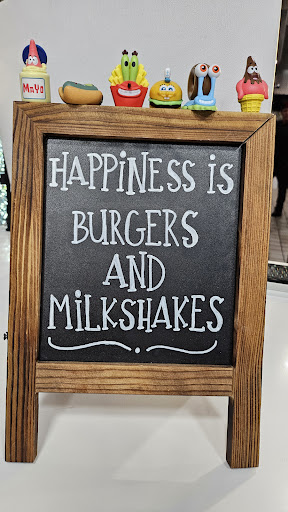 MaYo
HAPPiNESS iS
BURGERS
AND
MiLKSHAKES